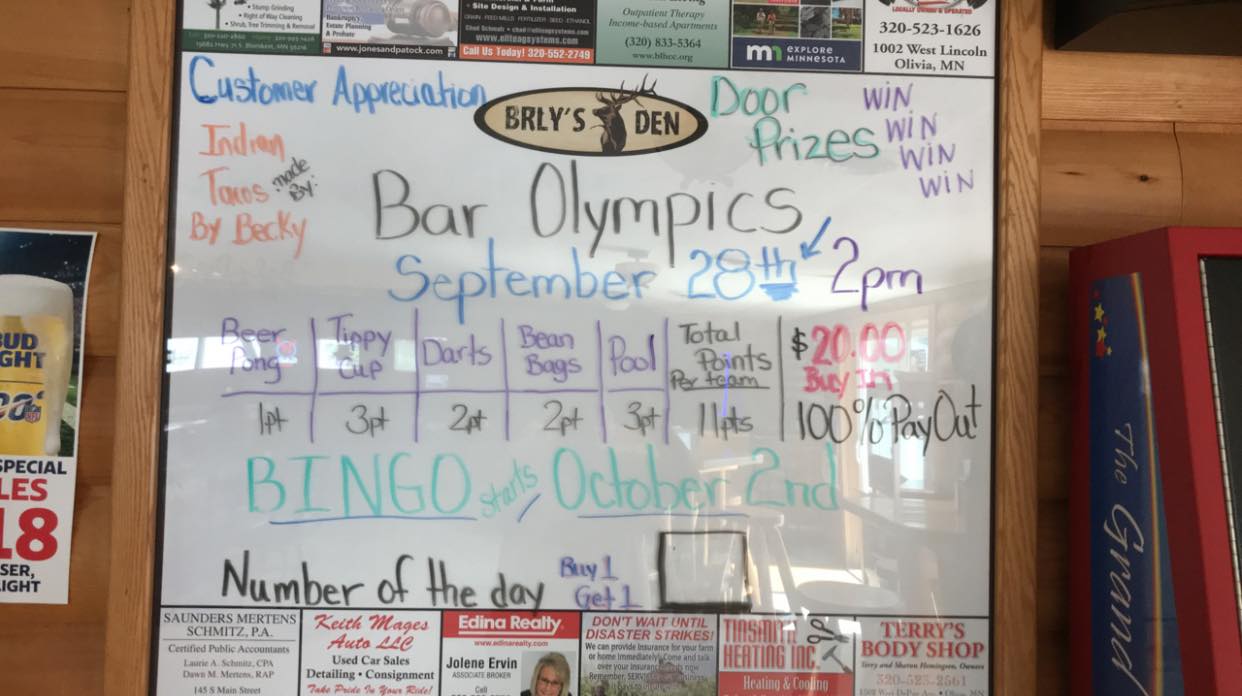 • Stump Grinding
• Right of Way Cleaning
• Shrub, Tree Trimming & Removal
Bankruptcy,
Estate Planning
& Probate
www.jonesandpatock.com
• Site Design & Installation
GRAIN · FEED MILLS · FERTILIZER · SEED · ETHANOL
www.eliteagsystems.com
Call Us Today! 320-552-2749
Outpatient Therapy
Income-based Apartments
(320) 833-5364
www.blhcc.org
mn EXPLORE
MINNESOTA
LOCALLY OWNED & OPERATED
320-523-1626
1002 West Lincoln
Olivia, MN
Customer Appreciation
BRLY'S DEN
Door
Prizes
WIN
WIN
WIN
WIN
Indian
Tacos made
By:
By Becky
Bar Olympics
September 28th 2pm
Beer
Pong
Tippy
Cup
Darts
Bean
Bags
Pool
Total
Points
Per team
$20.00
Buy In
1pt 3pt 2pt 2pt 3pt 11pts 100% Pay Out
BINGO starts October 2nd
Number of the day
Buy 1
Get 1
SAUNDERS MERTENS
SCHMITZ, P.A.
Certified Public Accountants
Laurie A. Schmitz, CPA
Dawn M. Mertens, RAP
145 S Main Street
Keith Mages
Auto LLC
Used Car Sales
Detailing • Consignment
Take Pride In Your Ride!
Edina Realty
www.edinarealty.com
Jolene Ervin
ASSOCIATE BROKER
Call
DON'T WAIT UNTIL
DISASTER STRIKES!
We can provide Insurance for your farm
or home Immediately! Come and talk
HEATING INC.
Heating & Cooling
TERRY'S
BODY SHOP
Terry and Sharon Hemingson, Owners
320-523-2561
BUD
LIGHT
NFL
SPECIAL
LES
18
SER,
IGHT
The Grand